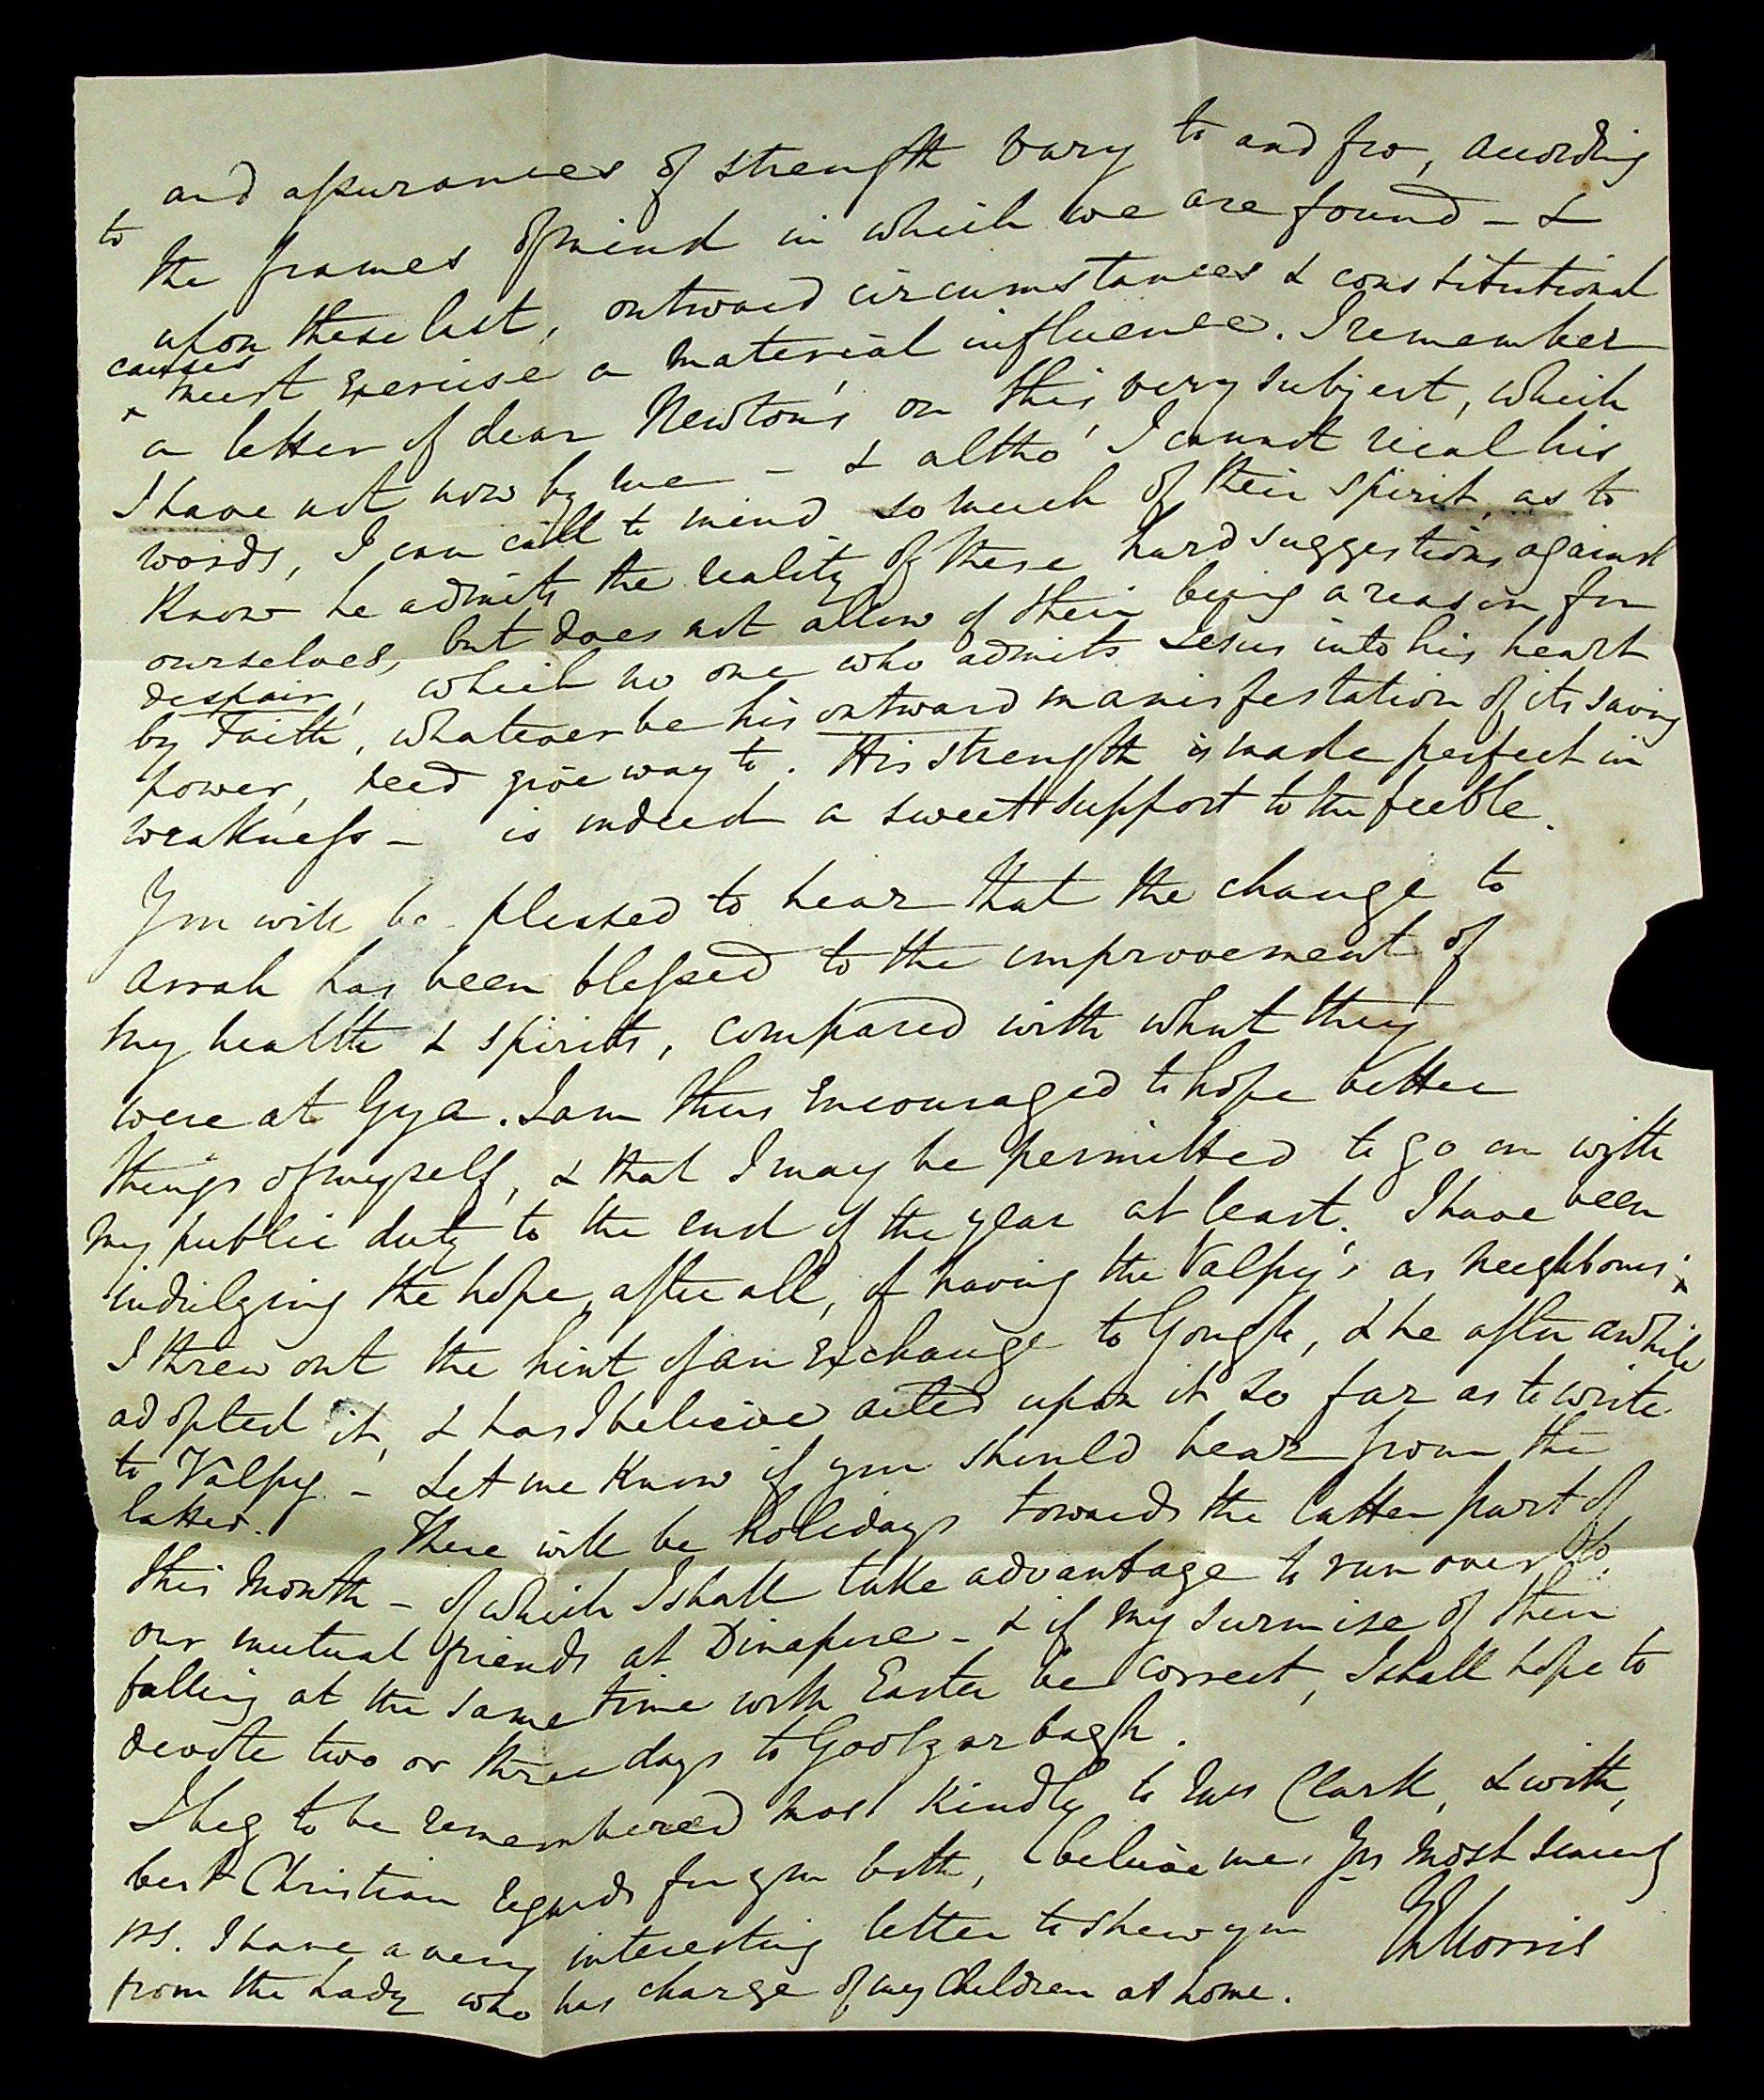 and assurances of strength vary to and fro, according
to the frames of mind in which we are found - &
upon these last, outward circumstances & constitutional
causes must exercise a material influence. I remember
a letter of dear Newton's on this very subject, which
I have not now by me - & altho' I cannot recal his
words, I can call to mind so much of their spirit, as to
know he admits the reality of these hard suggestions against
ourselves, but does not allow of their being a reason for
despair, which no one who admits Jesus into his heart
by Faith, whatever be his outward manisfestation of its saving
power, need give way to. His strength is made perfect in
weakness - is indeed a sweet support to the feeble.
You will be pleased to hear that the change to
Arrah has been blessed to the improvement of
my health & spirits, compared with what they
were at Gya. I am thus encouraged to hope better
things of myself, & that I may be permitted to go on with
my public duty to the end of the year at least. I have been
indulging the hope, after all, of having the Valpy's as neighbours;
I threw out the hint of an exchange to Gough, & he after awhile
adopted it, & has I believe acted upon it so far as to write
to Valpy - Let me know if you should hear from the
latter. There will be holidays towards the latter part of
this month - of which I shall take advantage to run over to
our mutual friends at Dinapore - & if my surmise of their
falling at the same time with Easter be correct, I shall hope to
devote two or three days to Goolzarbagh.
I beg to be remembered most kindly to Mrs Clark, & with,
best Christian regards for you both, believe me, Yrs most sincerely
Morris
PS. I have a very interesting letter to shew you
from the Lady who has charge of my Children at home.